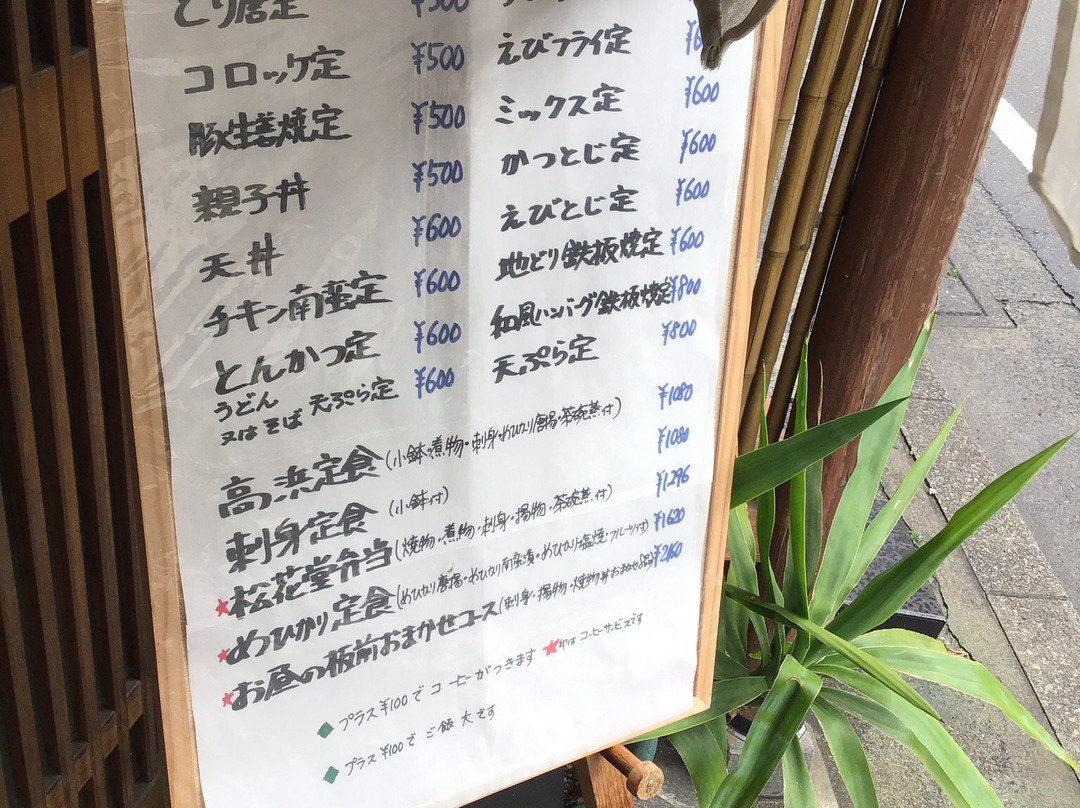 とり唐定 ¥500
コロッケ定 ¥500
豚生姜焼定 ¥500
親子丼 ¥500
天丼 ¥600
チキン南蛮定 ¥600
とんかつ定 ¥600
うどん
又はそば 天ぷら定 ¥600
えびフライ定
ミックス定 ¥600
かつとじ定 ¥600
えびとじ定 ¥600
地どり鉄板焼定 ¥600
和風ハンバーグ鉄板焼定 ¥800
天ぷら定 ¥800
高浜定食(小鉢・煮物・刺身・めひかり唐揚・茶碗蒸付) ¥1080
刺身定食(小鉢付) ¥1080
★松花堂弁当(焼物・煮物・刺身・揚物・茶碗蒸付) ¥1,296
★めひかり定食(めひかり唐揚・めひかり南蛮漬・めひかり塩焼・フルーツ付) ¥1620
★お昼の板前おまかせコース(刺身・揚物・焼物等おまかせ) ¥2160
◆プラス¥100でコーヒーがつきます ★印はコーヒーサービスです
◆プラス¥100でご飯大きす